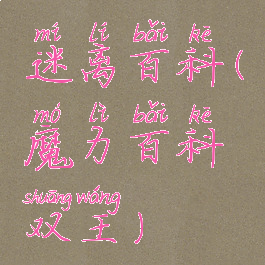 mí lí bǎi kē
迷离百科(
mó lì bǎi kē
魔力百科
shuāng wáng
双王)